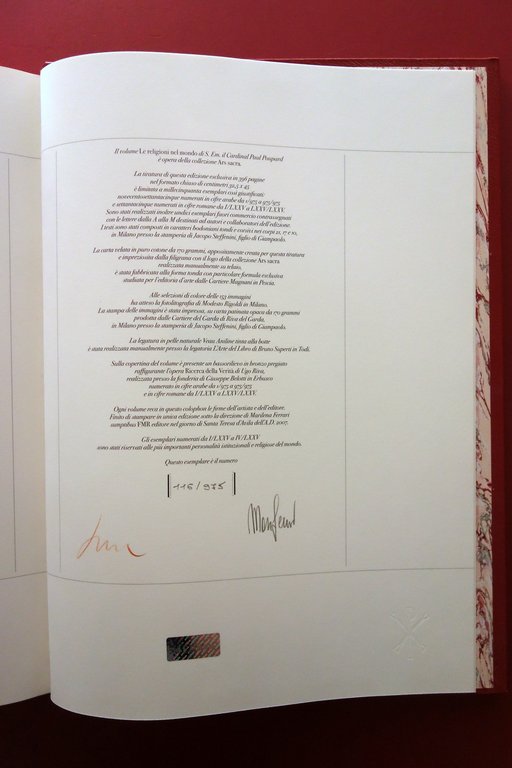 Il volume Le religioni nel mondo di S. Em. il Cardinal Paul Poupard
è opera della collezione Ars sacra.
La tiratura di questa edizione esclusiva in 396 pagine
nel formato chiuso di centimetri 32,5 x 45
è limitata a millecinquanta esemplari così giustificati:
novecentosettantacinque numerati in cifre arabe da 1/975 a 975/975
e settantacinque numerati in cifre romane da I/LXXV a LXXV/LXXV.
Sono stati realizzati inoltre undici esemplari fuori commercio contrassegnati
con le lettere dalla A alla M destinati ad autori e collaboratori dell'edizione.
I testi sono stati composti in caratteri bodoniani tondi e corsivi nei corpi 21, 17 e 10,
in Milano presso la stamperia di Jacopo Steffenini, figlio di Giampaolo.
La carta velata in puro cotone da 170 grammi, appositamente creata per questa tiratura
e impreziosita dalla filigrana con il logo della collezione Ars sacra
realizzata manualmente su telaio,
è stata fabbricata alla forma tonda con particolare formula esclusiva
studiata per l'editoria d'arte dalle Cartiere Magnani in Pescia.
Alle selezioni di colore delle 133 immagini
ha atteso la fotolitografia di Modesto Rigoldi in Milano.
La stampa delle immagini è stata impressa, su carta patinata opaca da 170 grammi
prodotta dalle Cartiere del Garda di Riva del Garda,
in Milano presso la stamperia di Jacopo Steffenini, figlio di Giampaolo.
La legatura in pelle naturale Veau Aniline tinta alla botte
è stata realizzata manualmente presso la legatoria L'Arte del Libro di Bruno Superti in Todi.
Sulla copertina del volume è presente un bassorilievo in bronzo pregiato
raffigurante l'opera Ricerca della Verità di Ugo Riva,
realizzato presso la fonderia di Giuseppe Belotti in Erbusco
numerato in cifre arabe da 1/975 a 975/975
e in cifre romane da I/LXXV a LXXV/LXXV.
Ogni volume reca in questo colophon le firme dell'artista e dell'editore.
Finito di stampare in unica edizione sotto la direzione di Marilena Ferrari
sumptibus FMR editore nel giorno di Santa Teresa d'Avila dell'A.D. 2007.
Gli esemplari numerati da I/LXXV a IV/LXXV
sono stati riservati alle più importanti personalità istituzionali e religiose del mondo.
Questo esemplare è il numero
116/975